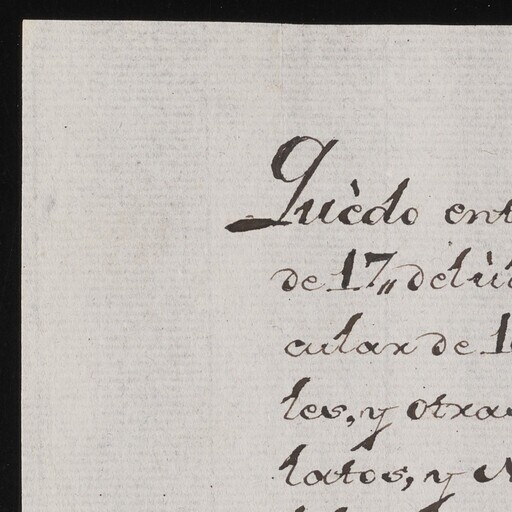 Quèdo ent
de 17,, del ùl
cular de 1
les, y otras
latos, y